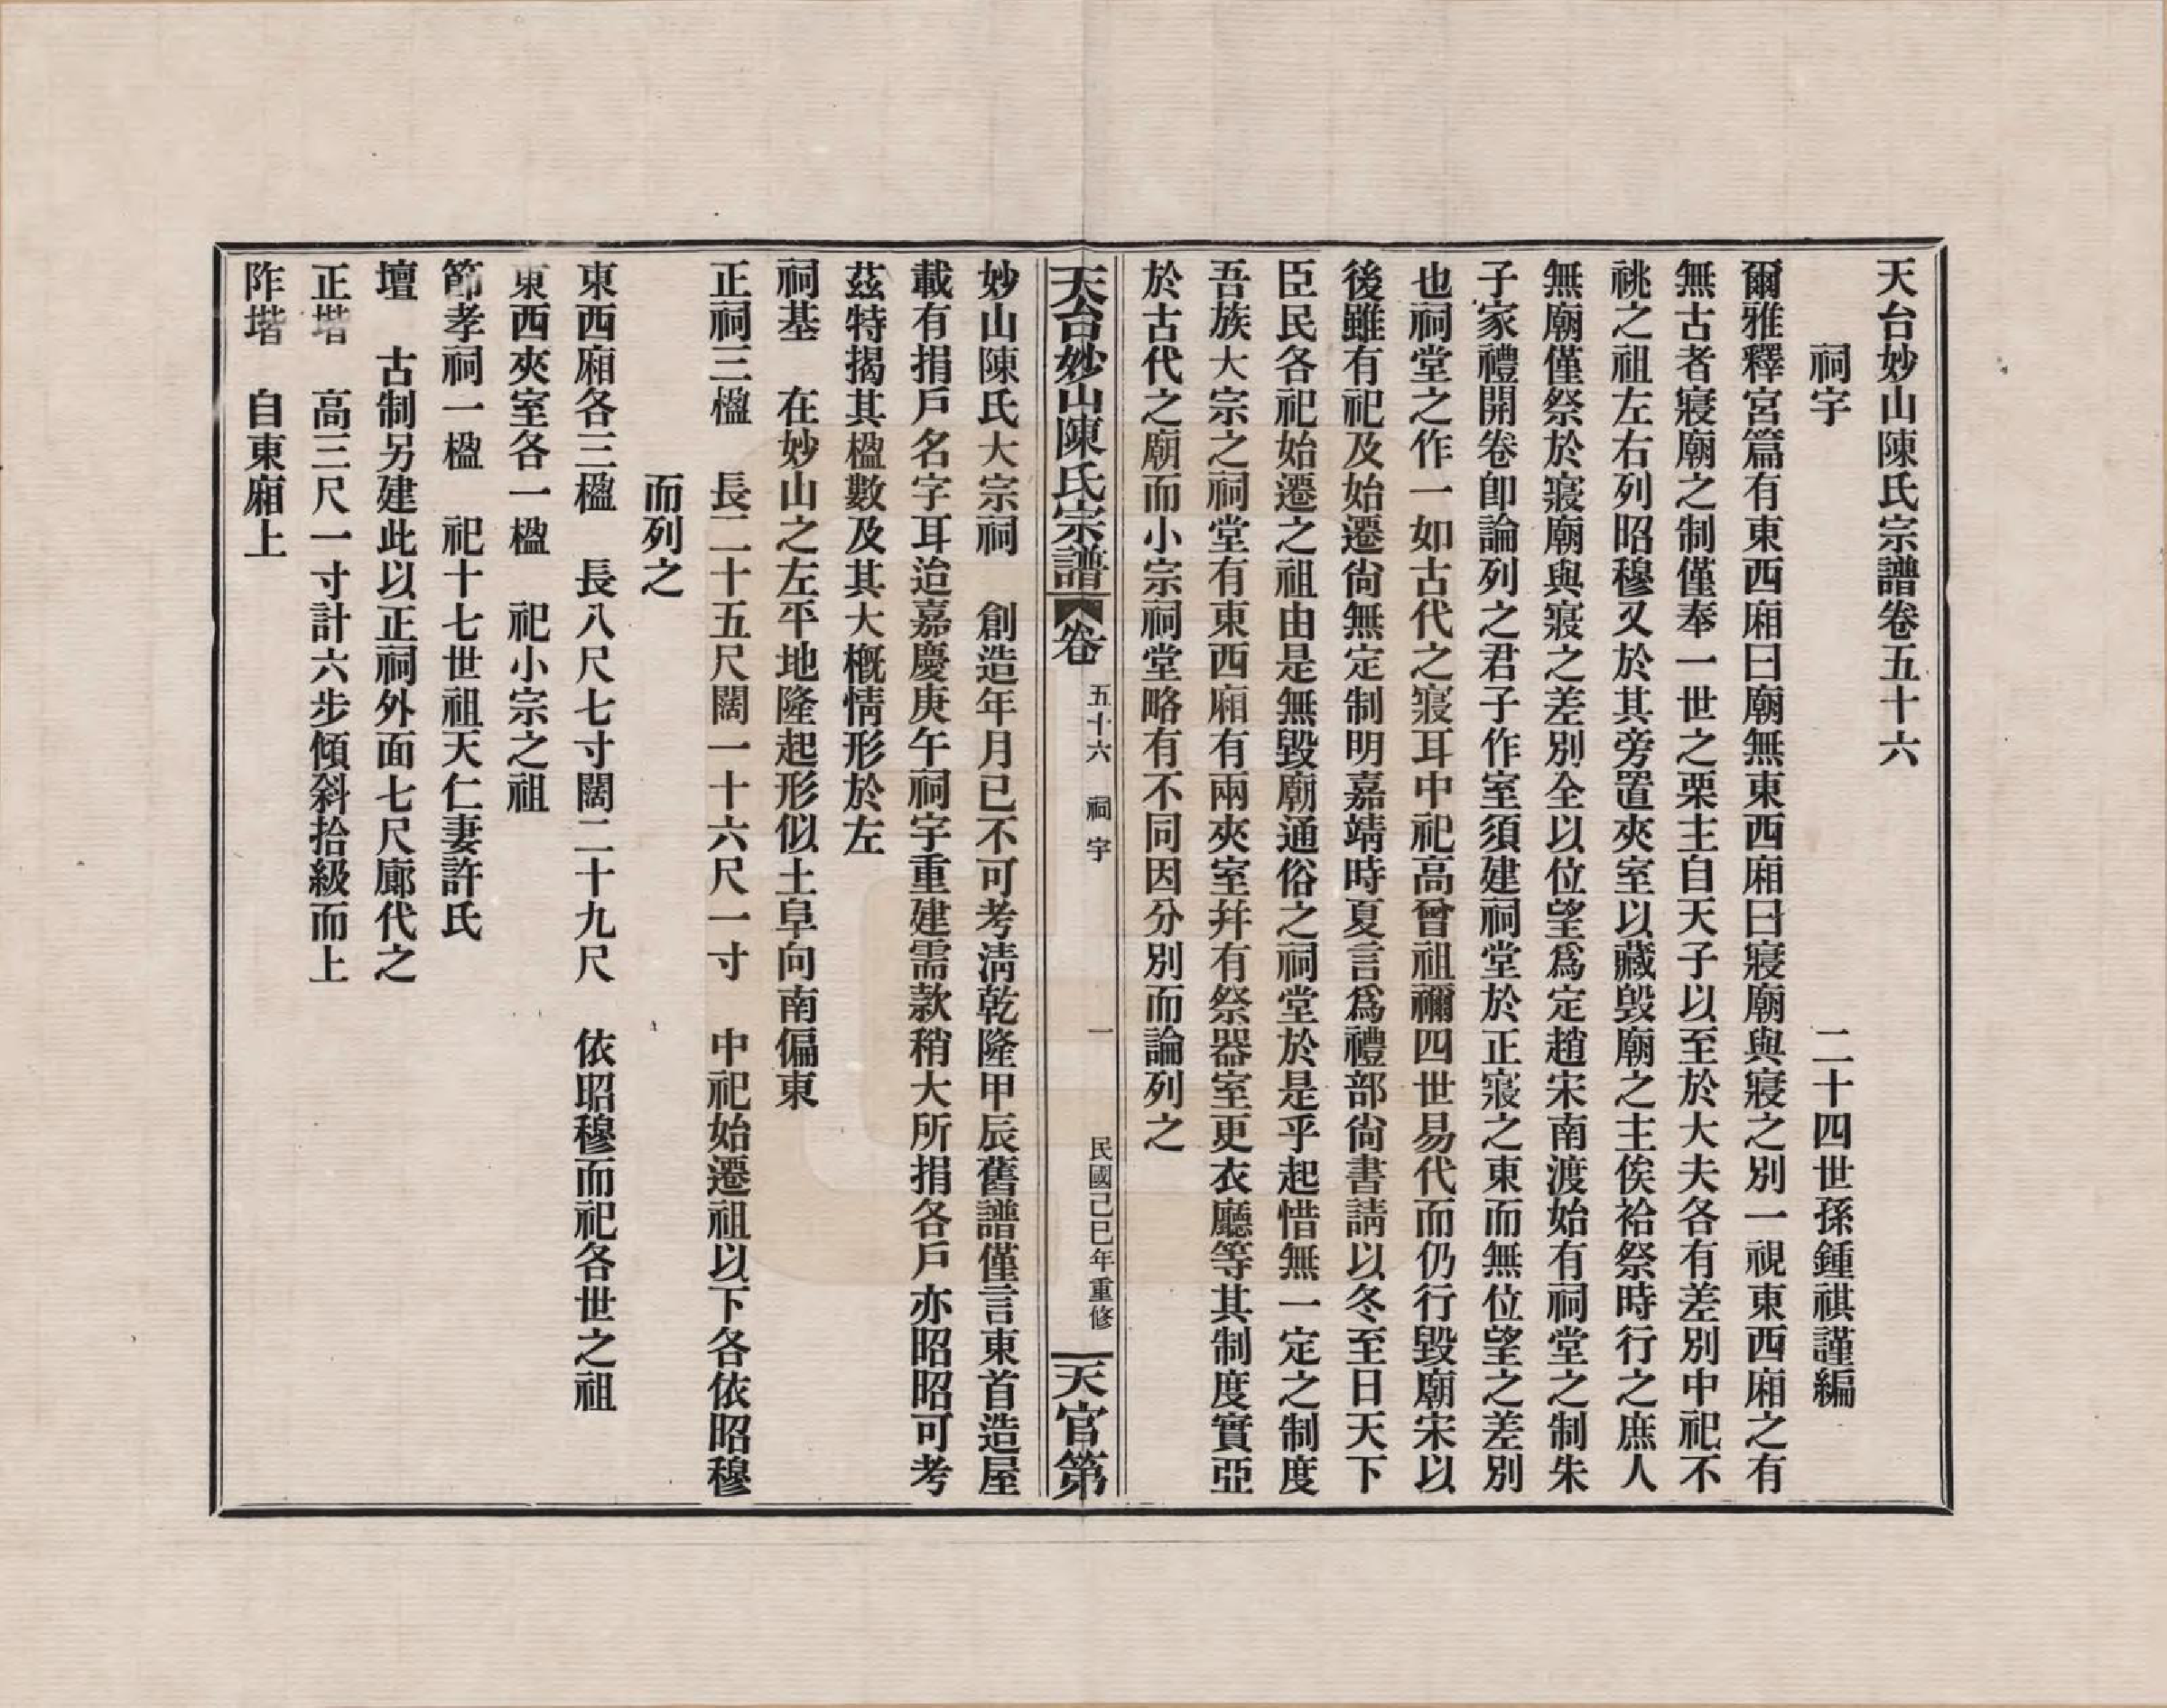 天台妙山陳氏宗譜卷五十六
祠宇　二十四世孫鍾祺謹編
爾雅釋宮篇有東西廂曰廟無東西廂曰寢廟與寢之別一視東西廂之有
無古者寢廟之制僅奉一世之栗主自天子以至於大夫各有差別中祀不
祧之祖左右列昭穆又於其旁置夾室以藏毀廟之主俟祫祭時行之庶人
無廟僅祭於寢廟與寢之差別全以位望爲定趙宋南渡始有祠堂之制朱
子家禮開卷卽論列之君子作室須建祠堂於正寢之東而無位望之差別
也祠堂之作一如古代之寢耳中祀高曾祖禰四世易代而仍行毀廟宋以
後雖有祀及始遷尙無定制明嘉靖時夏言爲禮部尙書請以冬至日天下
臣民各祀始遷之祖由是無毀廟通俗之祠堂於是乎起惜無一定之制度
吾族大宗之祠堂有東西廂有兩夾室幷有祭器室更衣廳等其制度實亞
於古代之廟而小宗祠堂略有不同因分別而論列之
天台妙山陳氏宗譜　卷　五十六　祠宇　一　民國己巳年重修　天官第
妙山陳氏大宗祠　創造年月已不可考淸乾隆甲辰舊譜僅言東首造屋
載有捐戶名字耳迨嘉慶庚午祠宇重建需款稍大所捐各戶亦昭昭可考
茲特揭其楹數及其大槪情形於左
祠基　在妙山之左平地隆起形似土阜向南偏東
正祠三楹　長二十五尺闊一十六尺一寸　中祀始遷祖以下各依昭穆
而列之
東西廂各三楹　長八尺七寸闊二十九尺　依昭穆而祀各世之祖
東西夾室各一楹　祀小宗之祖
節孝祠一楹　祀十七世祖天仁妻許氏
壇　古制另建此以正祠外面七尺廊代之
正堦　高三尺一寸計六步傾斜拾級而上
阼堦　自東廂上